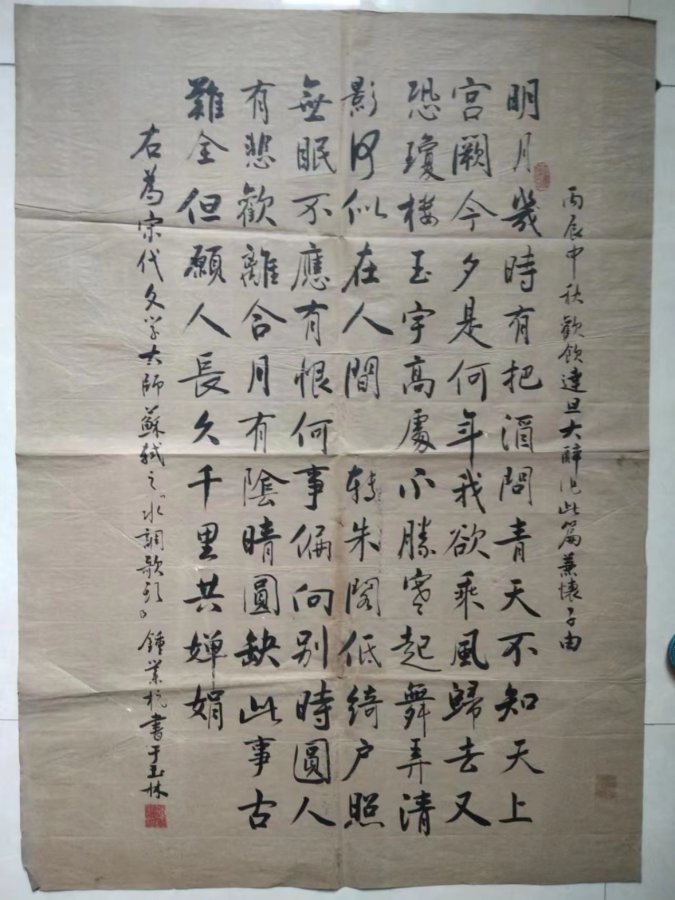 丙辰中秋歡飲達旦大醉作此篇兼懷子由
明月幾時有把酒問青天不知天上
宮闕今夕是何年我欲乘風歸去又
恐瓊樓玉宇高處不勝寒起舞弄清
影何似在人間 轉朱閣低綺户照
無眠不應有恨何事偏向别時圓人
有悲歡離合月有陰晴圓缺此事古
難全但願人長久千里共嬋娟
右為宋代文学大師蘇軾之《水調歌頭》 鍾業杭書于玉林